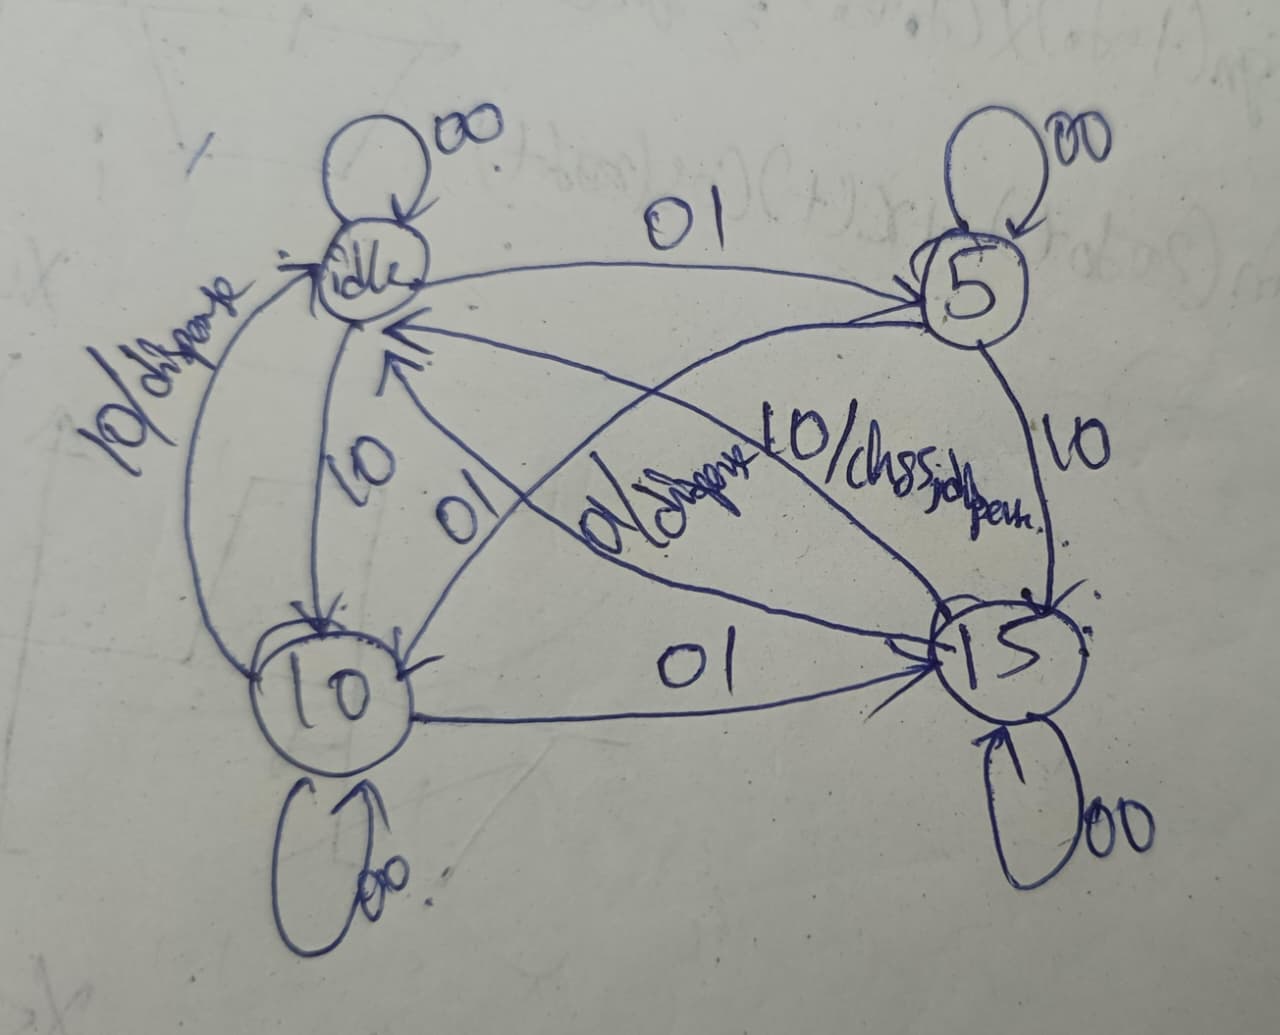 00
00
01
idle
5
10/dispense
10
01
01/dispense
10/chg5,dispense
10
10
01
15
00
00